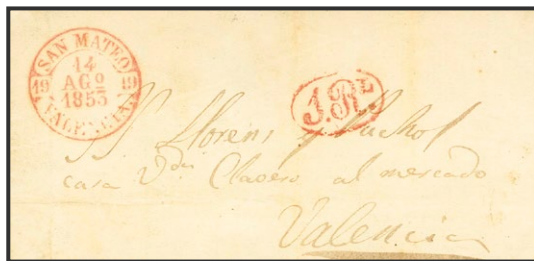 SAN MATEO
19 14 19
AGº
1853
VALENCIA.
1.Rˡ
Sʳ Llorens
casa Vᵈᵃ Clavero al mercado
Valencia